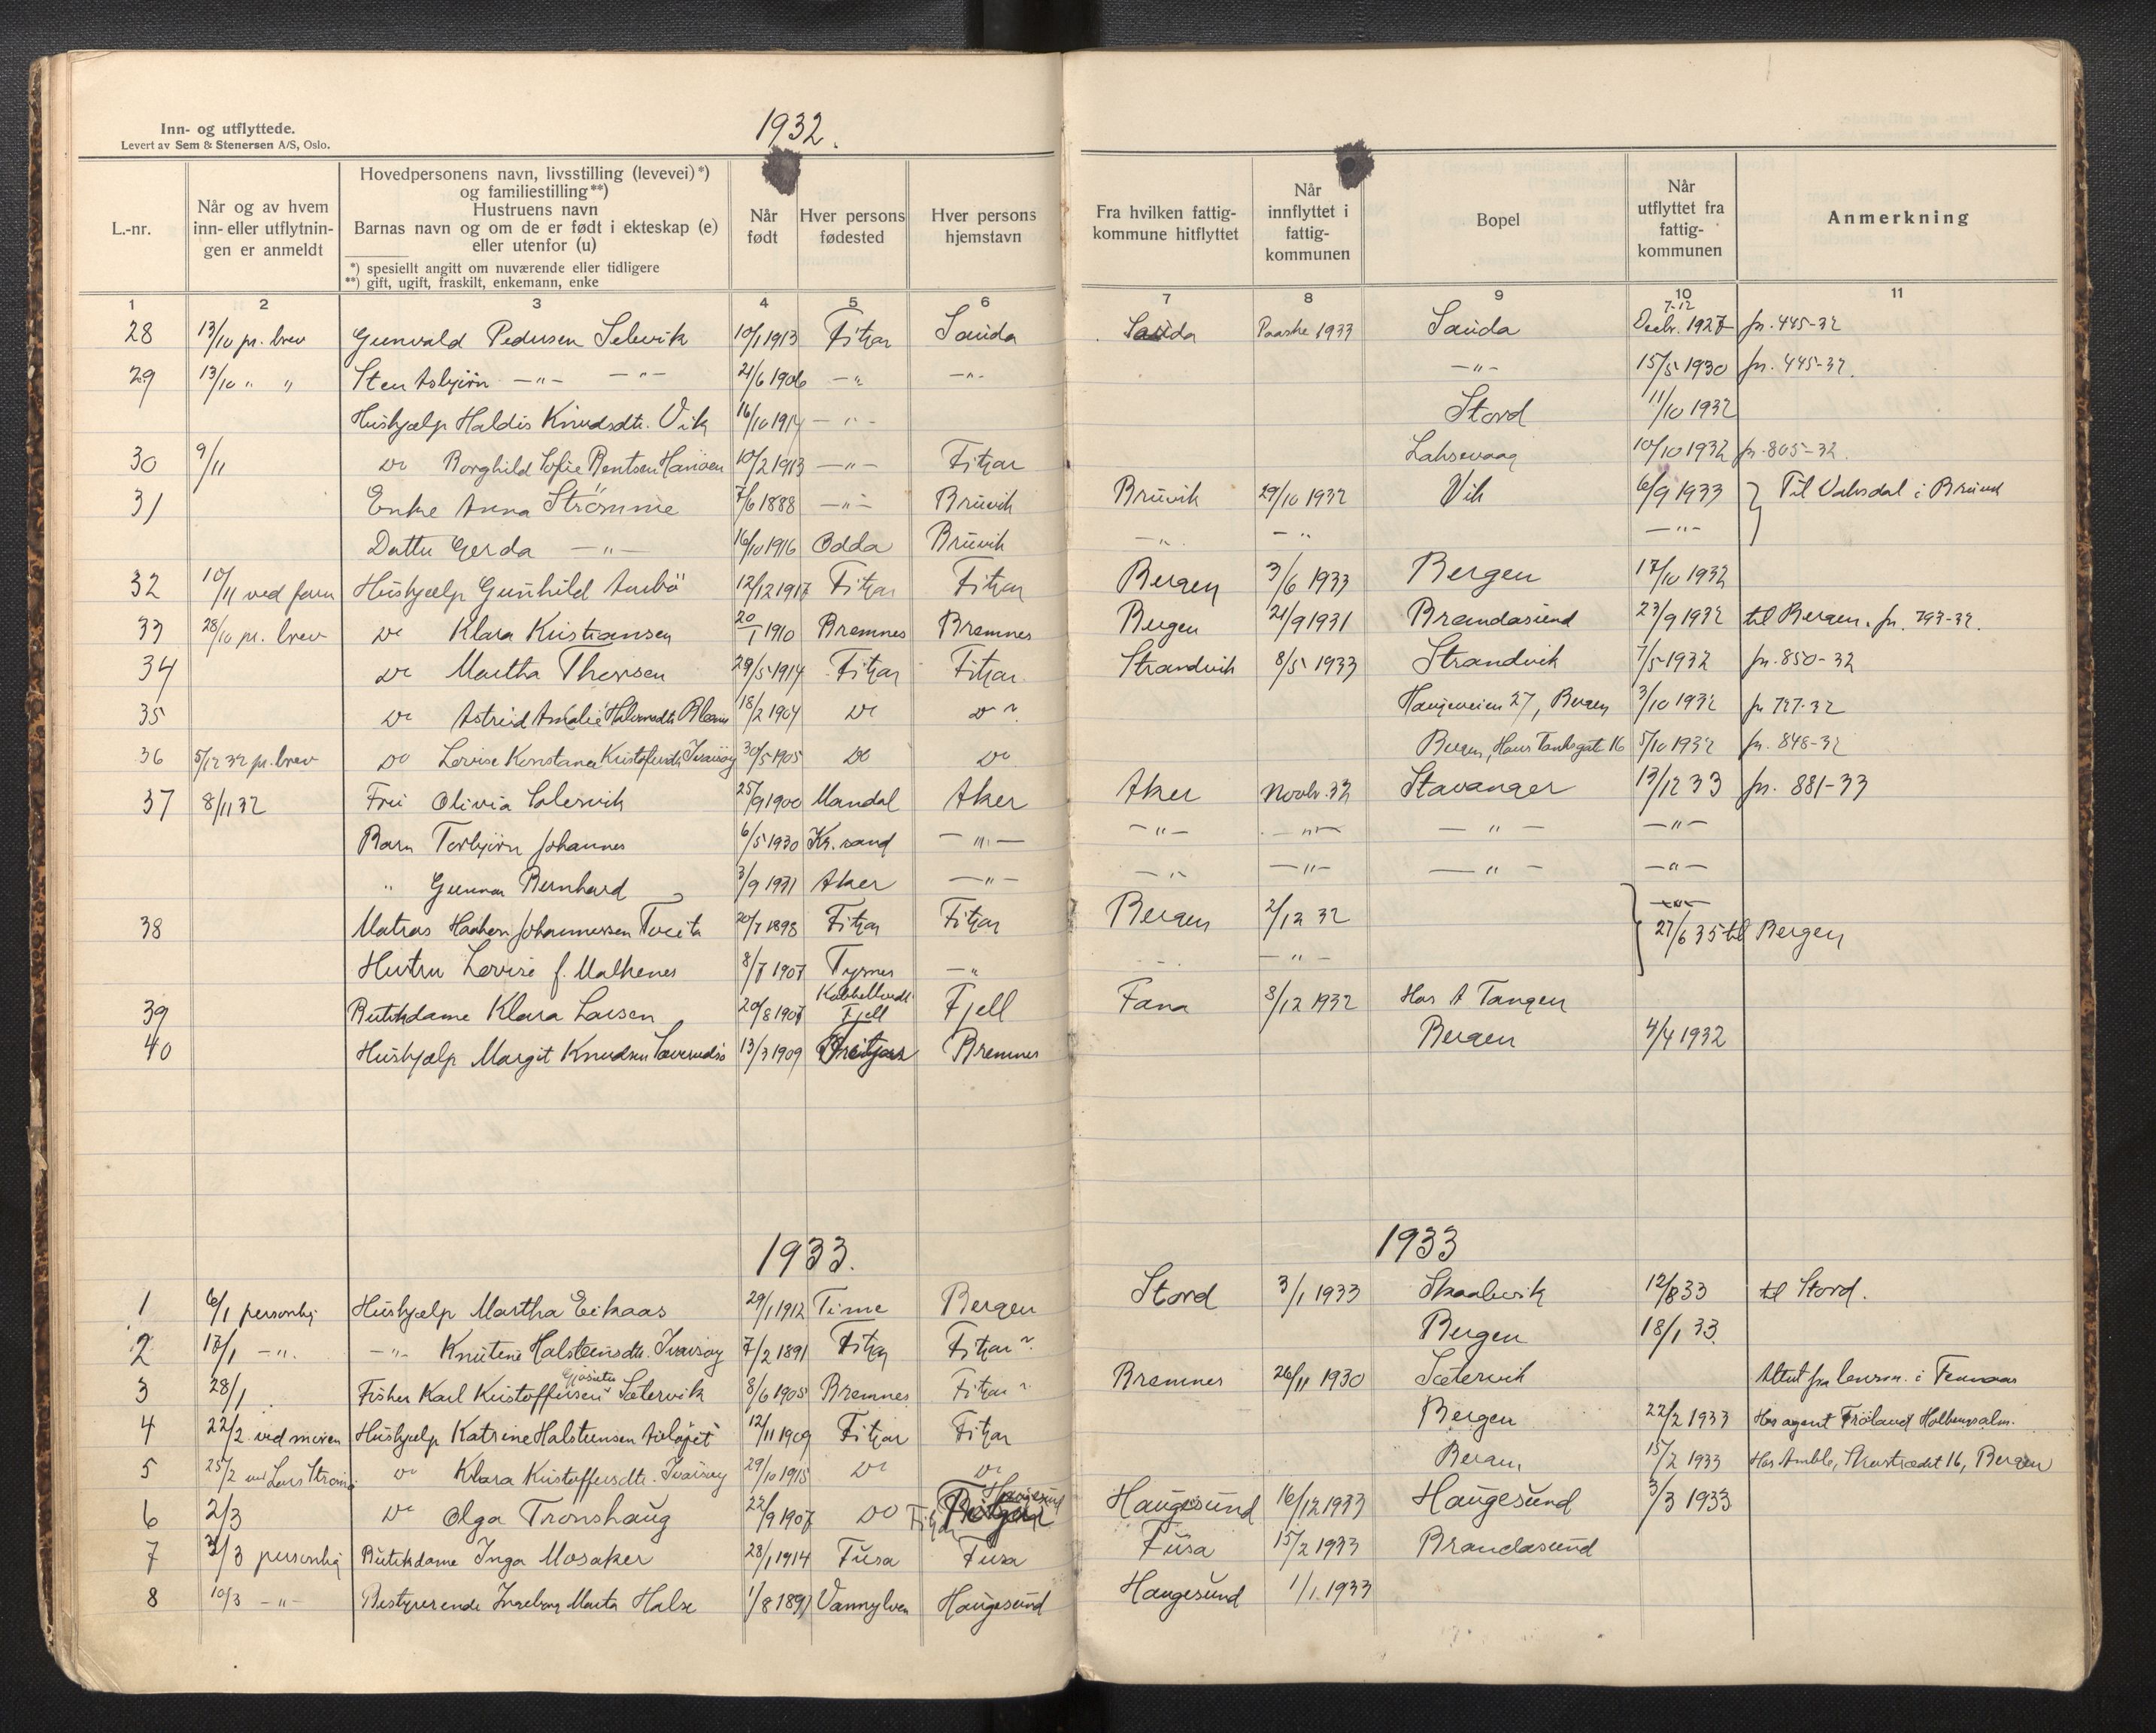 1932.
Inn- og utflyttede.
Levert av Sem & Stenersen A/S, Oslo.
L.-nr.
Når og av hvem inn- eller utflytnin-gen er anmeldt
Hovedpersonens navn, livsstilling (levevei)*)
og familiestilling**)
Hustruens navn
Barnas navn og om de er født i ekteskap (e)
eller utenfor (u)
*) spesiellt angitt om nuværende eller tidligere
**) gift, ugift, fraskilt, enkemann, enke
Når født
Hver persons fødested
Hver persons hjemstavn
Fra hvilken fattig-kommune hitflyttet
Når innflyttet i fattig-kommunen
Bopel
Når utflyttet fra fattig-kommunen
Anmerkning
1 2 3 4 5 6 7 8 9 10 11
28 13/10 pr. brev Gunvald Pedersen Selevik 10/1 1913 Fitjar Sauda Sauda Paaske 1933 Sauda 7-12 Decbr. 1927 jn. 445-32
29 13/10 " " Sten Asbjörn —"— —"— 21/6 1906 —" —"— —"— 15/5 1930 jn. 445-32.
Hushjælp Haldis Knudsdtr. Vik 16/10 1914 —"— Stord 11/10 1932
30 9/11 Do Borghild Sofie Bentsen 10/2 1913 —"— Fitjar Laksevaag 10/10 1932 jn. 805-32.
31 Enke Anna Strömme 7/6 1888 —"— Bruvik Bruvik 29/10 1932 Vik 6/9 1933 } Til Vaksdal i Bruvik
Datter Gerda —"— 16/10 1916 Odda Bruvik —"— —"— —"—
32 10/11 ved faren Hushjælp Gunhild 12/12 1917 Fitjar Fitjar Bergen 3/6 1933 Bergen 17/10 1932
33 28/10 pr. brev Do Klara Kristiansen 20/1 1910 Bremnes Bremnes Bergen 21/9 1931 Brandasund 23/9 1932 til Bergen. jn. 793-32.
34 Do Martha Thorsen 29/5 1914 Fitjar Fitjar Strandvik 8/5 1933 Strandvik 7/5 1932 jn. 850-32
35 Do Astrid Amalie 18/2 1904 Do Do ? Haugeveien 27, Bergen 3/10 1932 jn 727-32
36 5/12 32 pr. brev Do Lovise Konstanse Kristofersdtr. Ivarsøy 30/5 1905 Do Do Bergen, Hans Tanksgate 16 5/10 1932 jn. 848-32
37 8/11 32 Fru Olivia 25/9 1900 Mandal Aker Aker Novbr. 32 Stavanger 13/12 33 jn. 881-33
Barn Torbjörn Johannes 6/5 1930 Kr. sand —"— —"— —"— —"— —"—
" Gunnar Bernhard 3/9 1931 Aker —"— —"— —"— —"— —"—
38 Matros Haakon Johannessen Tveita 20/7 1898 Fitjar Fitjar Bergen 2/12 32 } 27/6 35 til Bergen
Hustru Lovise f. Malkenes 8/7 1907 Tysnes —" —"—
39 Butikdame Klara Larsen 20/8 1907 Fjell Fjell Fana 8/12 1932 Hos A Tangen
40 Hushjælp Margit Knudsen 13/3 1909 Bremnes Bergen 4/4 1932
1933. 1933
1 6/1 personlig Hushjælp Martha Eikaas 29/1 1912 Time Bergen Stord 3/1 1933 Skaalevik 12/8 33 til Stord.
2 17/1 —"— —"— Knutine Halsteinsdtr. Ivarsøy 7/2 1891 Fitjar Fitjar ? Bergen 18/1 33.
3 28/1 Fisker Karl Kristoffersen Sætervik 8/6 1905 Bremnes Fitjar ? Bremnes 26/11 1930 Sætervik Attest fra lensm. i Fennaas
4 22/2 ved moren Hushjælp Katrine Halsteinsen 12/11 1909 Fitjar Fitjar Bergen 22/2 1933 Hos agent Fröland
5 25/2 Do Klara Kristoffersdtr. Ivarsøy 29/10 1915 Do Do Bergen 15/2 1933 Hos Amble, 16, Bergen
6 2/3 Do Olga Tronshaug 22/9 1907 Do Fitjar Haugesund Haugesund 16/12 1933 Haugesund 3/3 1933
7 3/3 personlig Butikdame Inga Mosaker 28/1 1914 Fusa Fusa Fusa 15/2 1933 Brandasund
8 10/3 —"— Bestyrerende Ingeborg Marta Halse 1/8 1891 Vannylven Haugesund Haugesund 1/1 1933